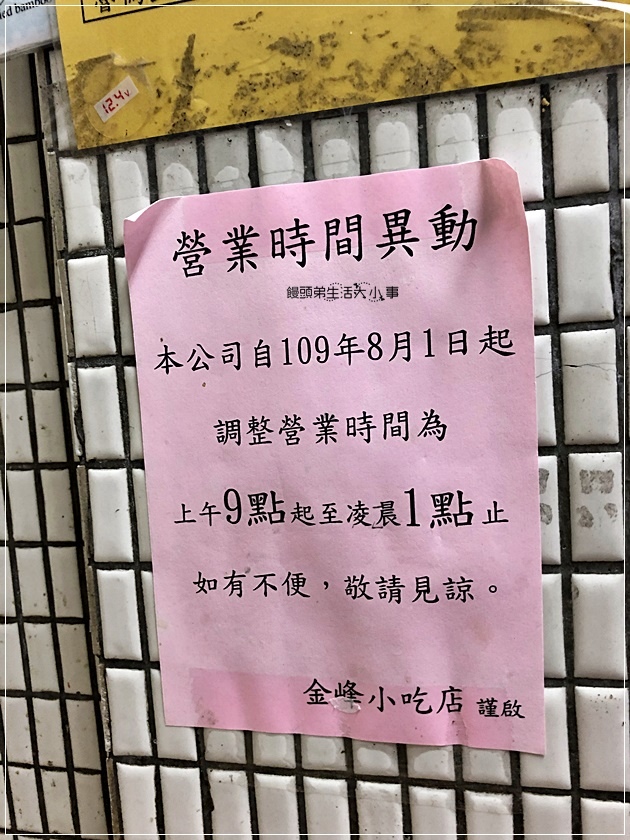 ied bamboo
12.4.
營業時間異動
饅頭弟生活大小事
本公司自109年8月1日起
調整營業時間為
上午9點起至凌晨1點止
如有不便，敬請見諒。
金峰小吃店 謹啟